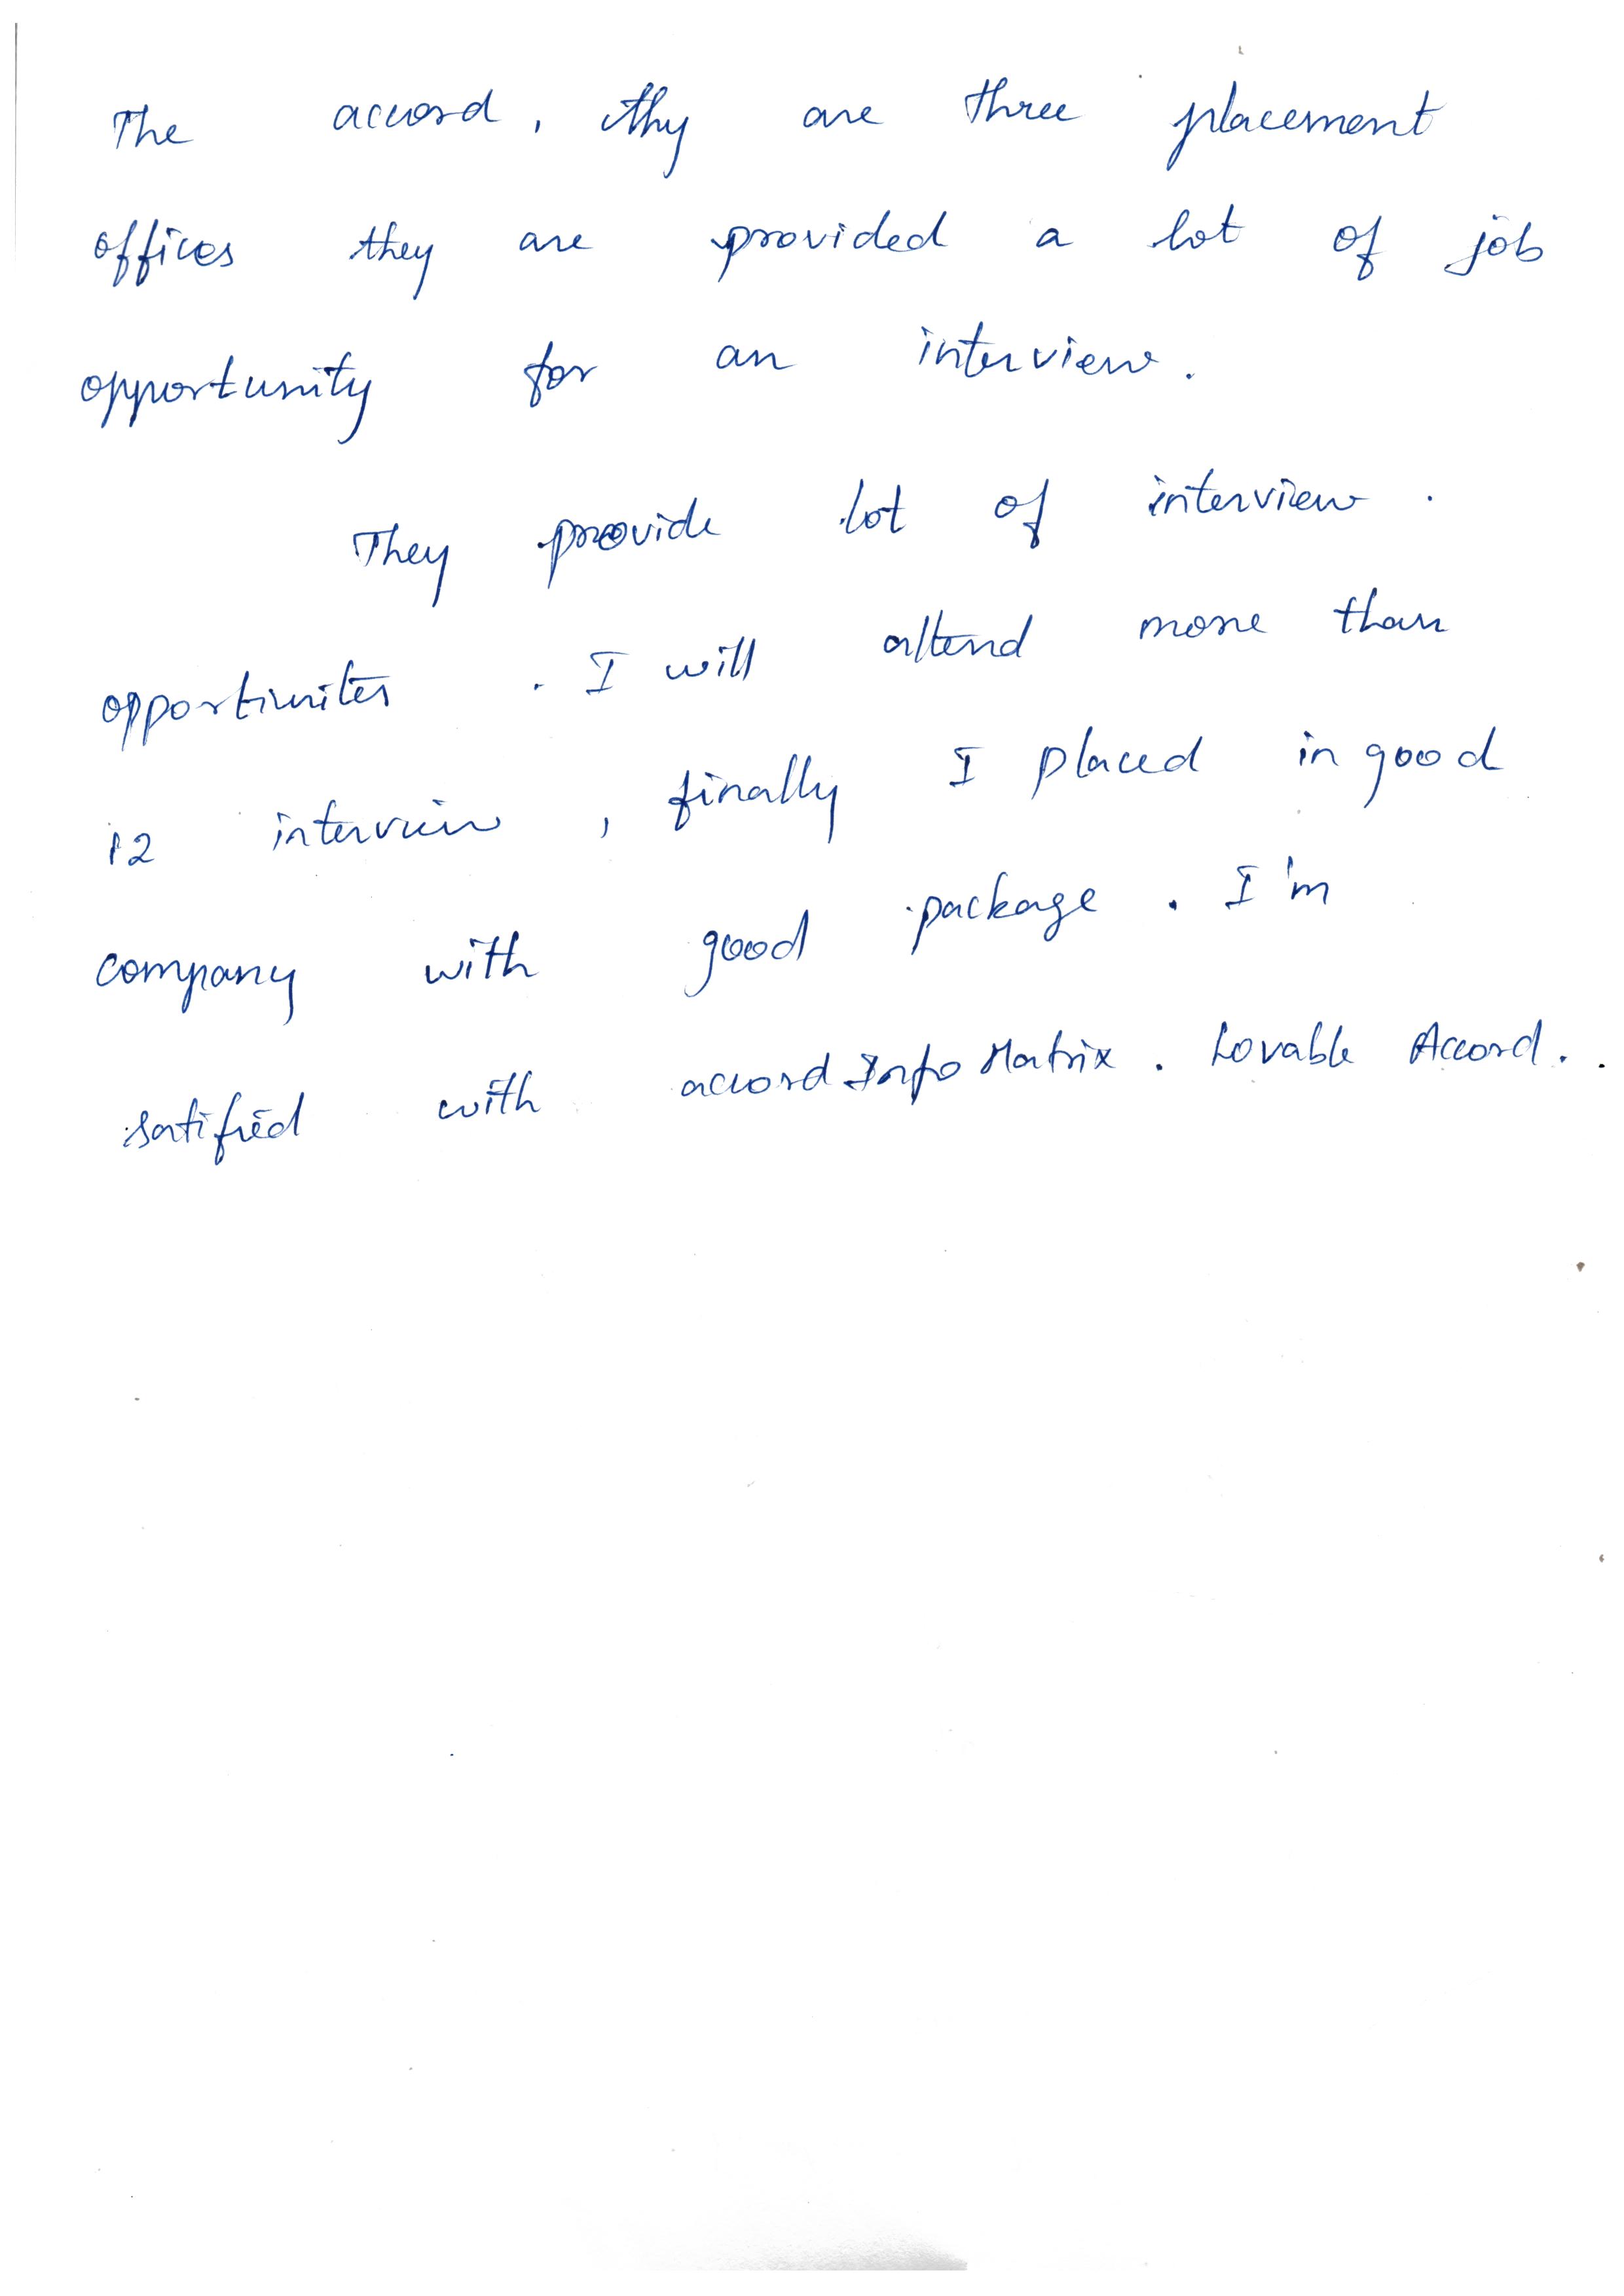 The accord, thy are three placement
offices they are provided a lot of job
opportunity for an interview.
They provide lot of interview.
opportunites. I will attend more than
12 interview, finally I placed in good
company with good package. I'm
satified with accord Info Matrix. Lovable Accord.